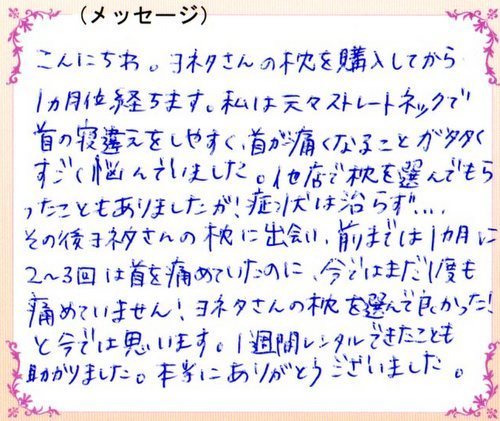 (メッセージ)
こんにちわ。ヨネタさんの枕を購入してから
1ヵ月位経ちます。私は元々ストレートネックで
首の寝違えをしやすく、首が痛くなることが多く
すごく悩んでいました。他店で枕を選んでもら
ったこともありましたが、症状は治らず...
その後ヨネタさんの枕に出会い、前までは1ヵ月に
2〜3回は首を痛めていたのに、今ではまだ1度も
痛めていません!ヨネタさんの枕を選んで良かった!
と今では思います。1週間レンタルできたことも
助かりました。本当にありがとうございました。